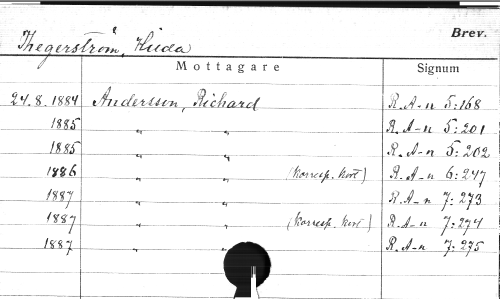 Brev.
Thegerström, Hilda
Mottagare Signum
24.8.1884 Andersson, Richard R.A-n 5:168
1885 " " R.A-n 5:201
1885 " " R.A-n 5:202
1886 " " (Korresp. kort) R.A-n 6:247
1887 " " R.A-n 7:273
1887 " " (Korresp. kort) R.A-n 7:274
1887 " " R.A-n 7:275